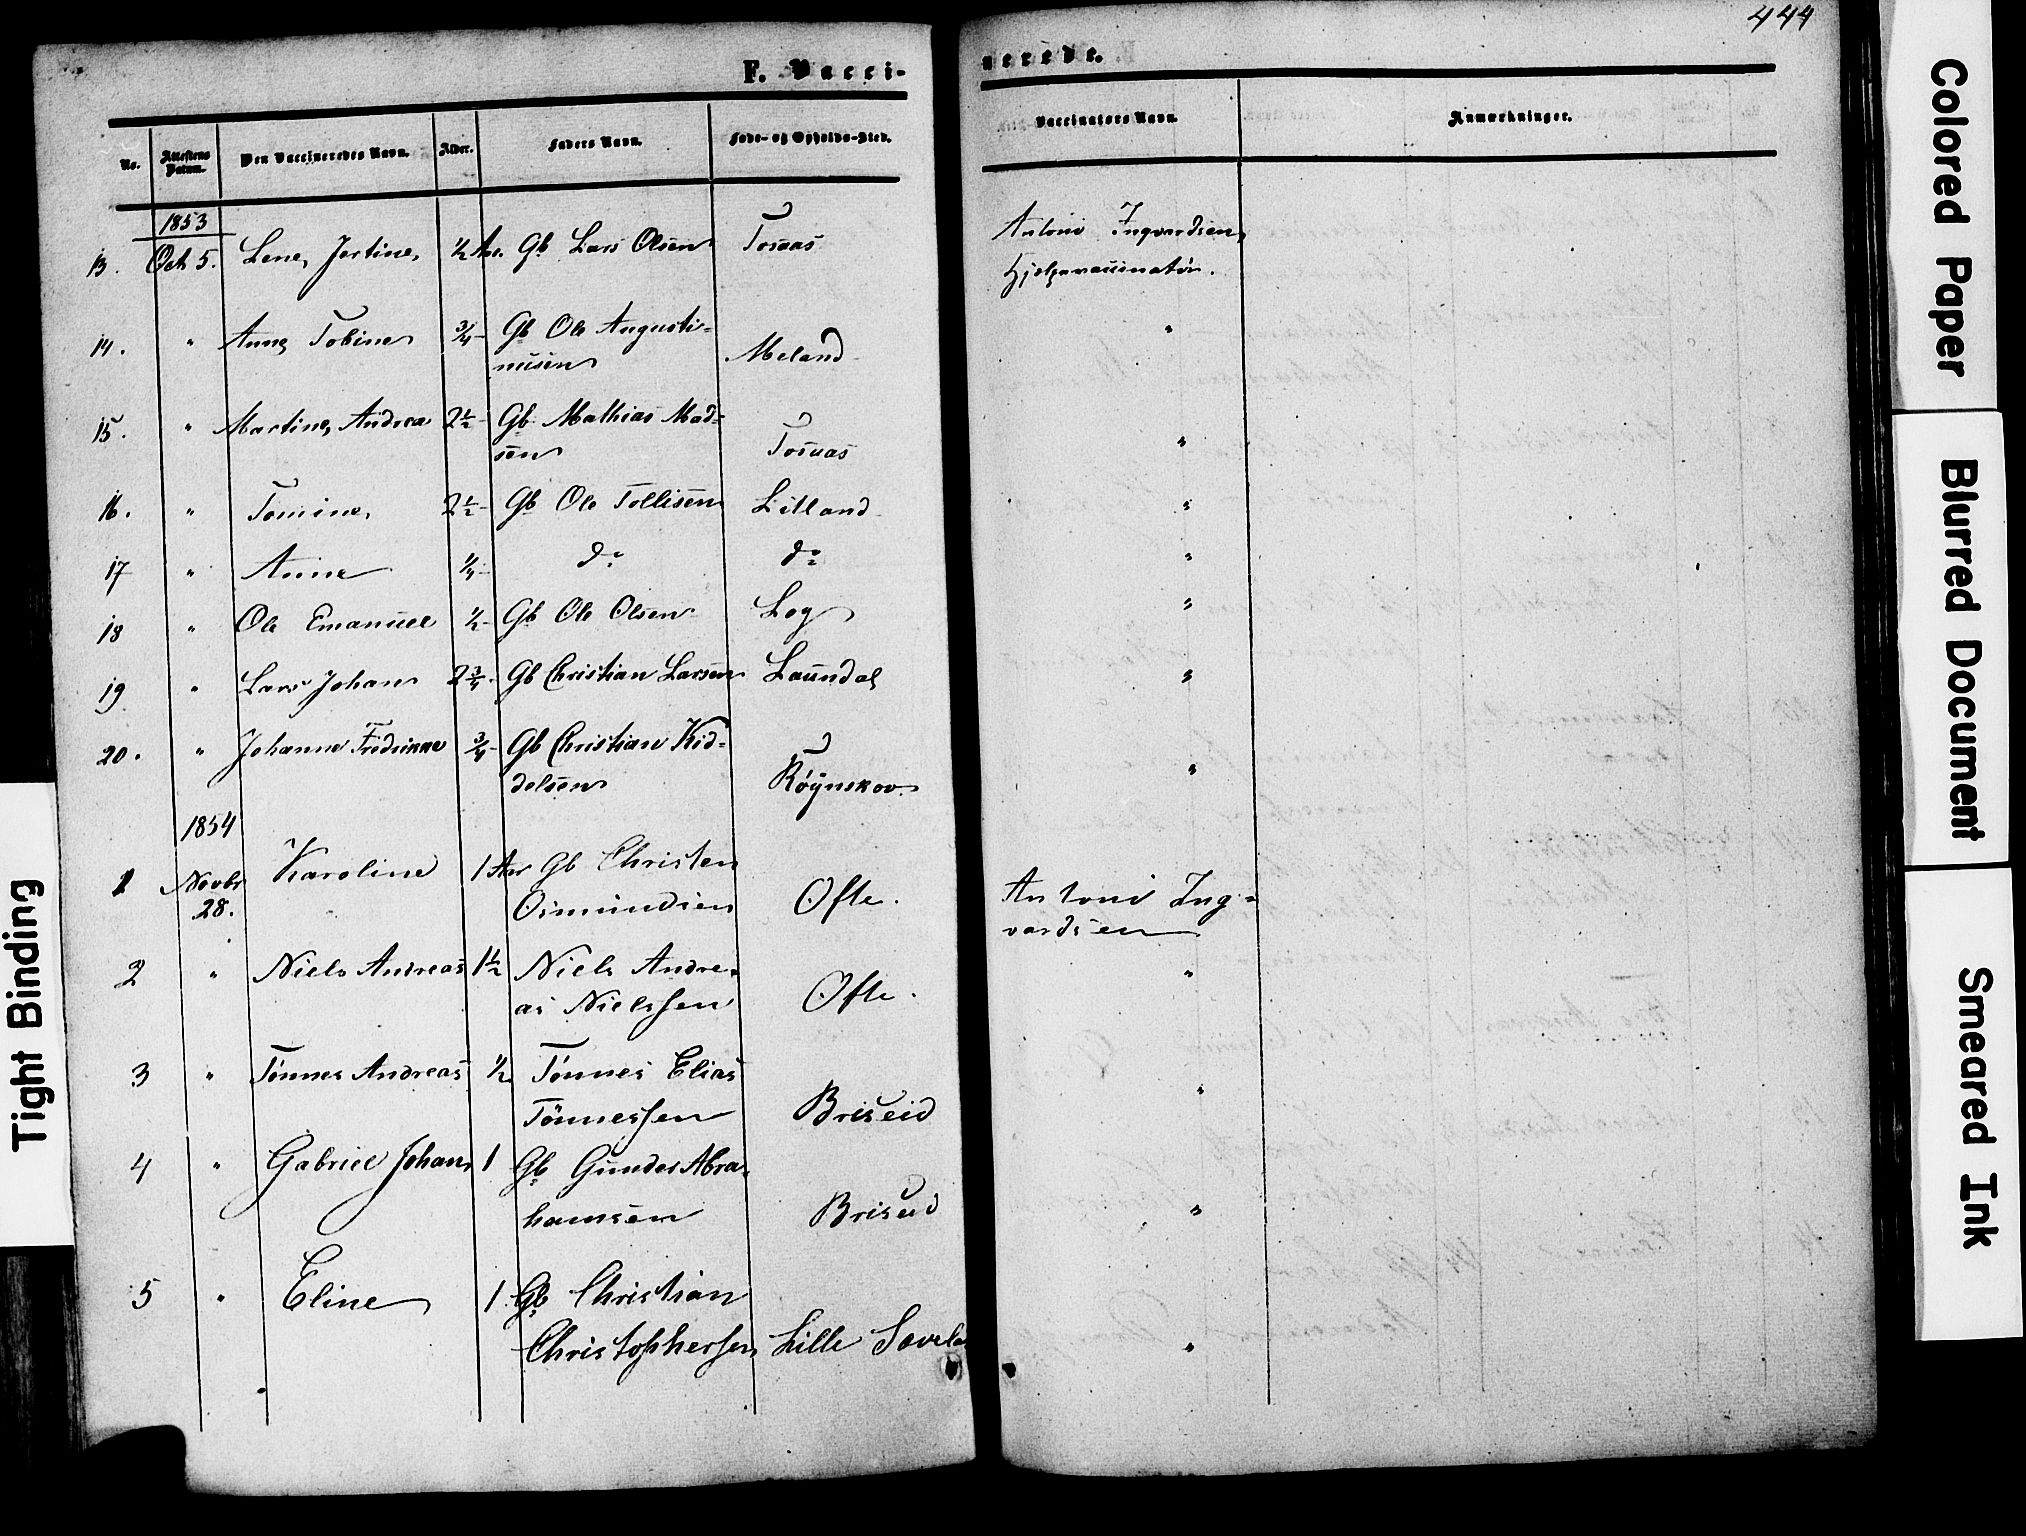 444
F. Vacci-
nerede.
No.
Attestens Datum.
Den Vaccineredes Navn.
Alder.
Faders Navn.
Føde- og Opholds-Sted.
Vaccinators Navn.
Anmærkninger.
1853
13. Oct 5. Lene Jertine, 1/2 Aar. Gb Lars Olsen Tosaas Antoni Ingvardsen,
Hjelpevaccinatør.
14. " Anne Tobine 3/4 - Gb Ole Augusti-
nusen Meland "
15. " Martine Andrea 2 1/2 - Gb Mathias Mad-
sen Tosaas "
16. " Tomine, 2 1/2 - Gb Ole Tollisen Litland "
17 " Anne 1/4 - do do "
18 " Ole Emanuel 1/2 - Gb Ole Olsen Log "
19 " Lars Johan 2 3/4 - Gb Christian Larsen Laundal "
20. " Johanne Fredrikke 3/4 - Gb Christian Kid-
delsen Røynskov "
1854
1 Novbr Karoline 1 Aar Gb Christen
28. Osmundsen Ofte. Antoni Ing-
vardsen
2 " Niels Andreas 1 1/2 Niels Andre-
as Nielssen Ofte. "
3 " Tønnes Andreas 1/2 Tønnes Elias
Tønnessen Briseid "
4 " Gabriel Johan 1 Gb Gunder Abra-
hamsen Briseid "
5 " Eline 1 Gb Christian
Christophersen Lille "
Tight Binding
Colored Paper
Blurred Document
Smeared Ink